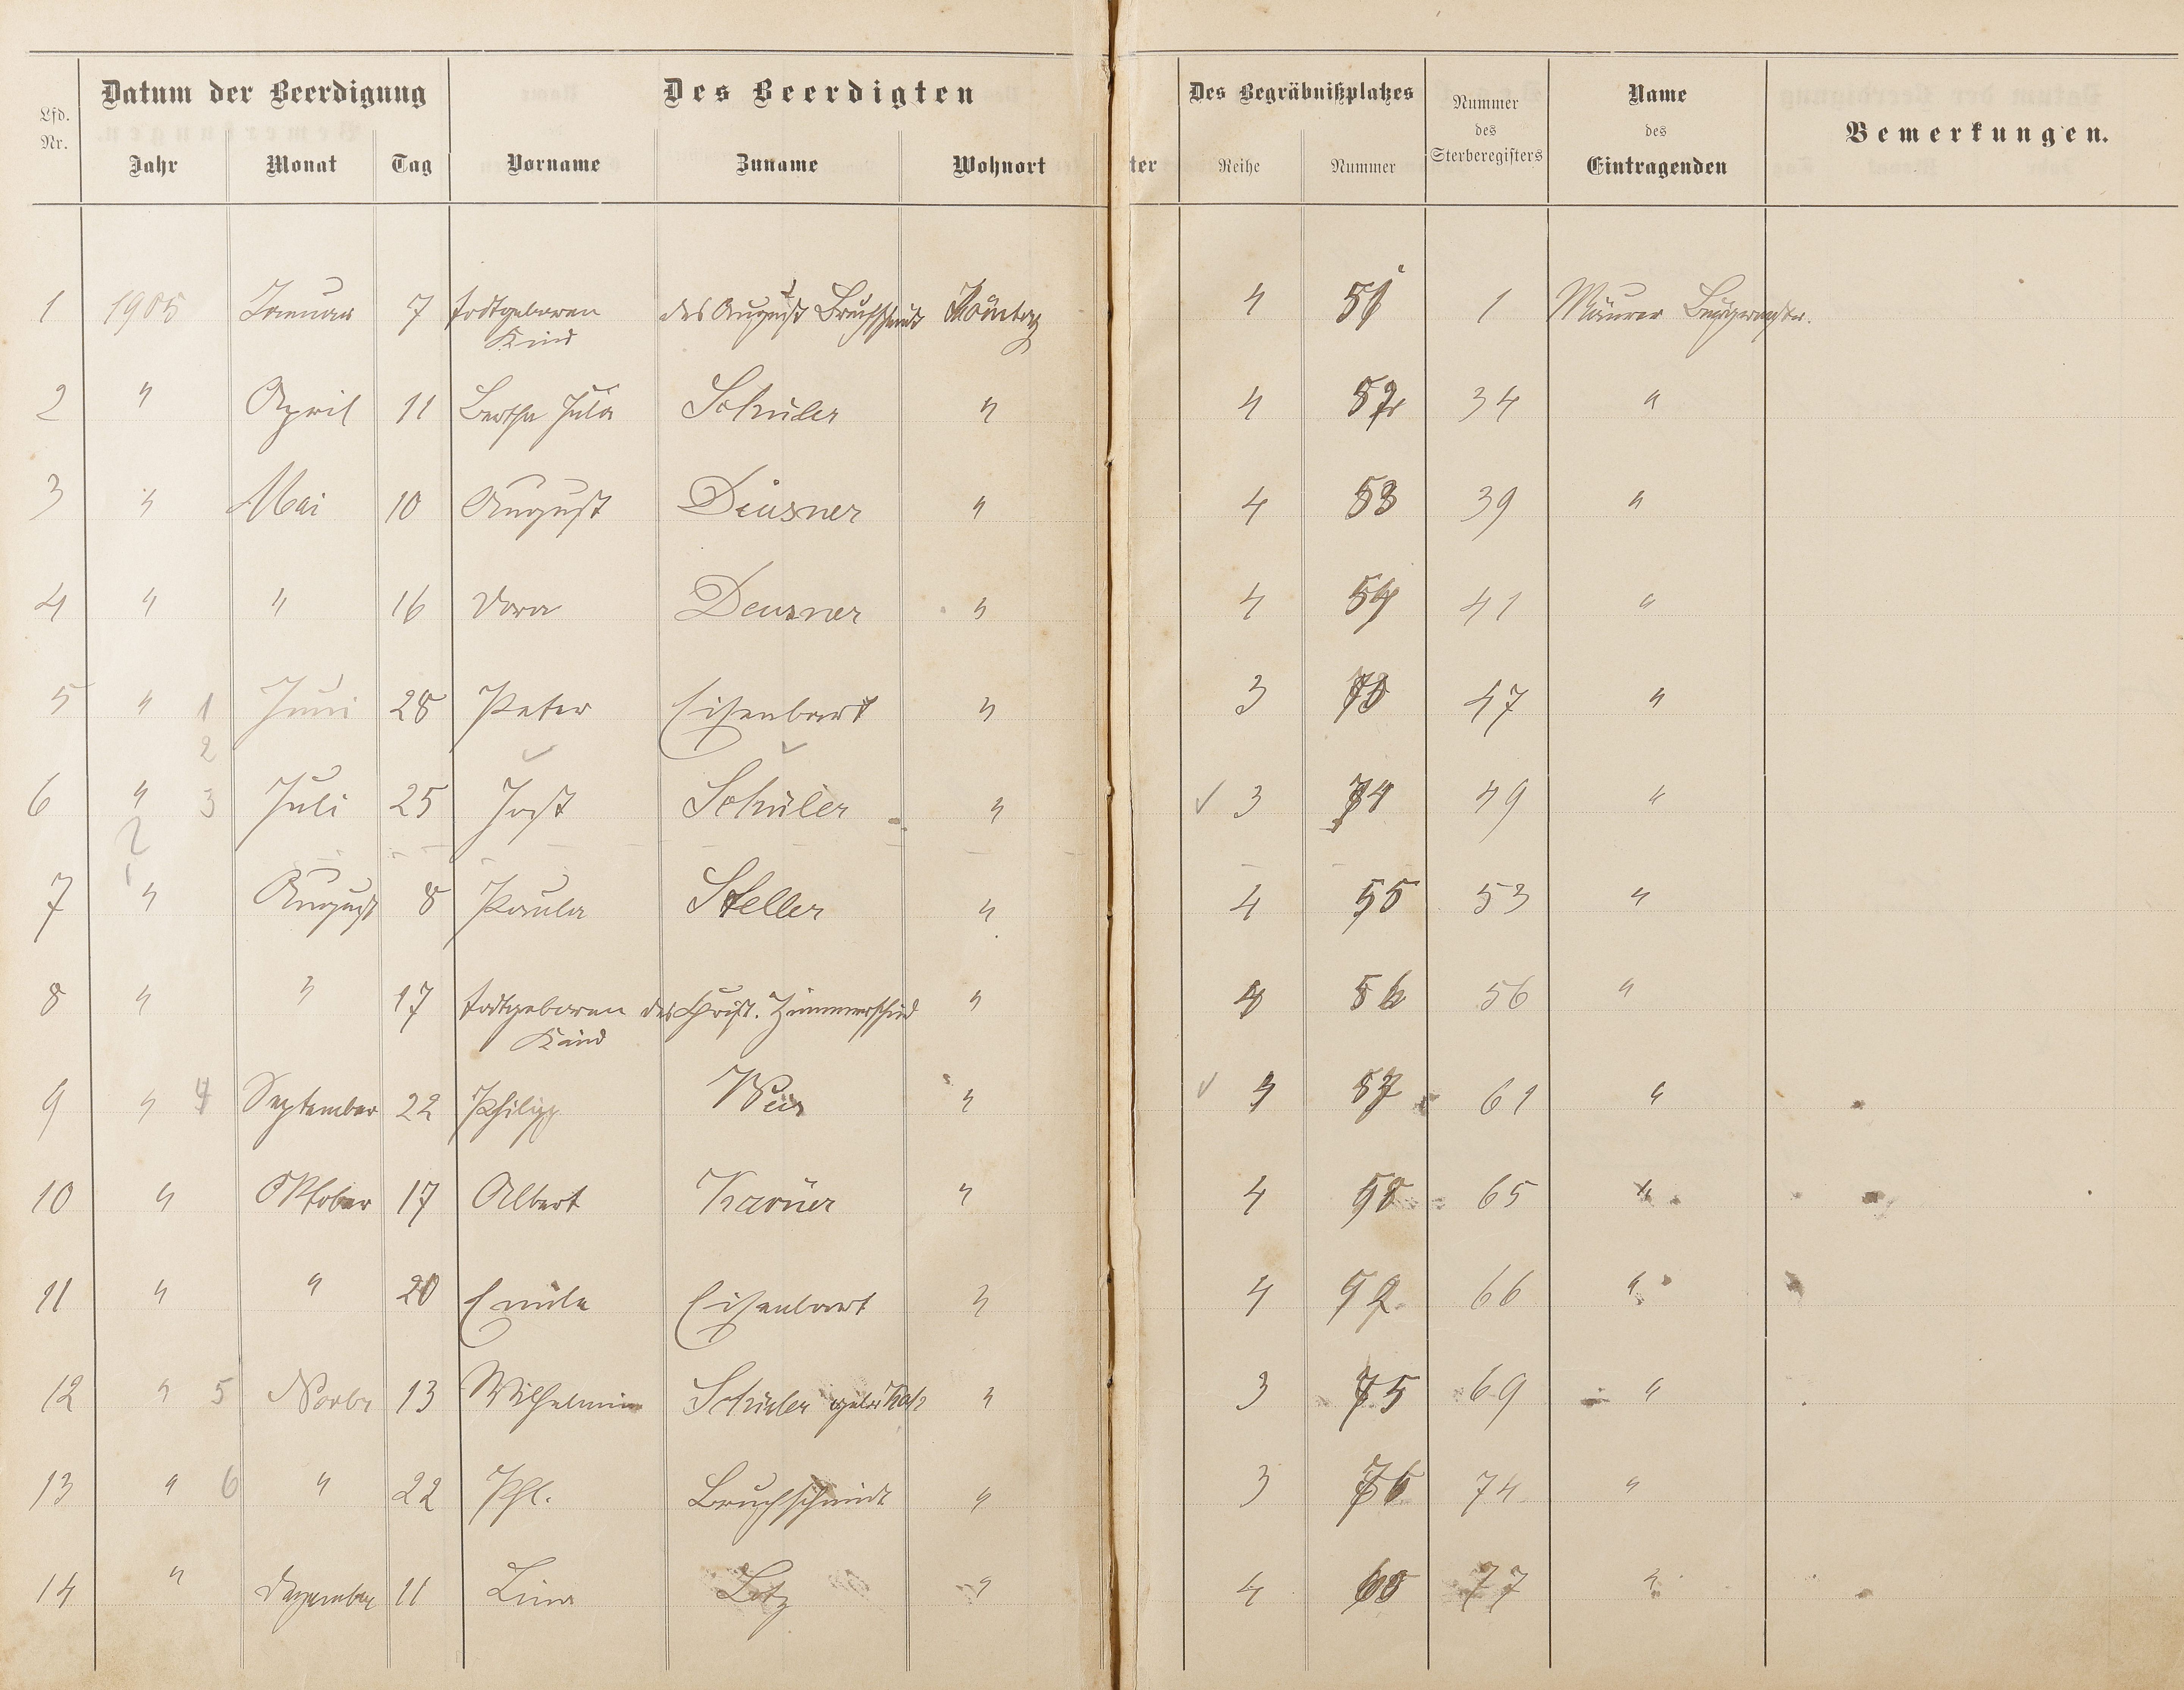 Datum der Beerdigung Des Beerdigten Des Begräbnißplatzes Nummer Name
Lfd. des des Bemerkungen.
Nr. Jahr Monat Tag Vorname Zuname Wohnort ter Reihe Nummer Sterberegisters Eintragenden
1 1905 Januar 7 todtgeboren des August Bruchschmidt 4 51 1 Mäurer
Kind
2 " April 11 Bertha Jula Schuler " 4 52 34 "
3 " Mai 10 August Deusner " 4 53 39 "
4 " " 16 Dora Deusner " 4 54 41 "
5 " 1 Juni 28 Peter Eisenbart " 3 47 "
2
6 " 3 Juli 25 Jost Schuler " 3 74 49 "
7 " August 8 Paula Steller " 4 55 53 "
8 " " 17 todtgeboren des Christ. Zimmerschied " 4 56 56 "
Kind
9 " 4 September 22 Philipp " 4 57 61 "
10 " Oktober 17 Albert " 4 58 65 "
11 " " 20 Emilie Eisenbart " 4 59 66 "
12 " 5 Novbr 13 Wilhelmine Schuler " 3 75 69 "
13 " 6 " 22 Phl. Bruchschmidt " 3 76 74 "
14 " Dezember 11 Lina Lotz " 4 60 77 "